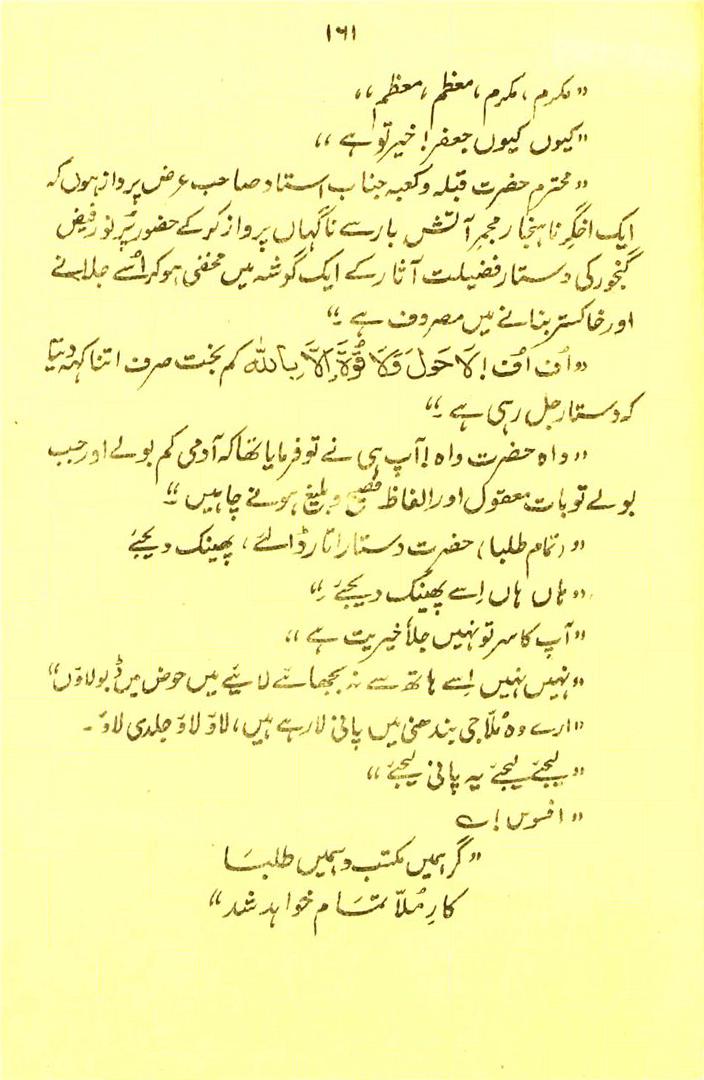 ۱۶۱
”مکرم، مکرم، معظم، معظم“
”کیوں کیوں جعفر! خیر تو ہے“
”محترم حضرت قبلہ و کعبہ جناب استاد صاحب عرض پرداز ہوں کہ
ایک اخگرِ ناہنجار مجمرِ آتش بار سے ناگہاں پرواز کر کے حضور پُر نور فیض
گنجور کی دستار فضیلت آثار کے ایک گوشہ میں مخفی ہو کر اُسے جلانے
اور خاکستر بنانے میں مصروف ہے۔“
”اُف اُف! لَا حَولَ وَلَا قُوَّۃَ اِلَّا بِاللہ کم بخت صرف اتنا کہہ دیتا
کہ دستار جل رہی ہے۔“
”واہ حضرت واہ! آپ ہی نے تو فرمایا تھا کہ آدمی کم بولے اور جب
بولے تو بات معقول اور الفاظ فصیح و بلیغ ہونے چاہیں۔“
”(تمام طلبا) حضرت دستار اتار ڈالئے، پھینک دیجئے
”ہاں ہاں اِسے پھینک دیجئے۔“
”آپ کا سر تو نہیں جلا خیریت ہے“
”نہیں نہیں اِسے ہاتھ سے نہ بجھائے لائیے میں حوض میں ڈبو لاؤں“
”ارے وہ مُلّا جی بندھنی میں پانی لا رہے ہیں، لاؤ لاؤ جلدی لاؤ۔
”لیجئے لیجئے یہ پانی لیجئے“
”افسوس! ؎
”گر ہمیں مکتب و ہمیں طلبَا
کارِ مُلّا تمَام خواہد شد“